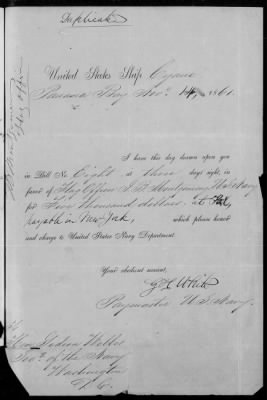 Duplicate
United States Ship Cyane
Panama Bay Nov. 14, 1861.
I have this day drawn upon you
in Bill No. Eight at three days sight, in
favor of Flag Officer J. B. Montgomery U.S. Navy
for Five thousand dollars
payable in New York, which please honor
and charge to United States Navy Department.
Your obedient servant,
Paymaster U.S. Navy.
Hon. Gideon Welles
Secy. of the Navy
Washington
D. C.
Flag Officer